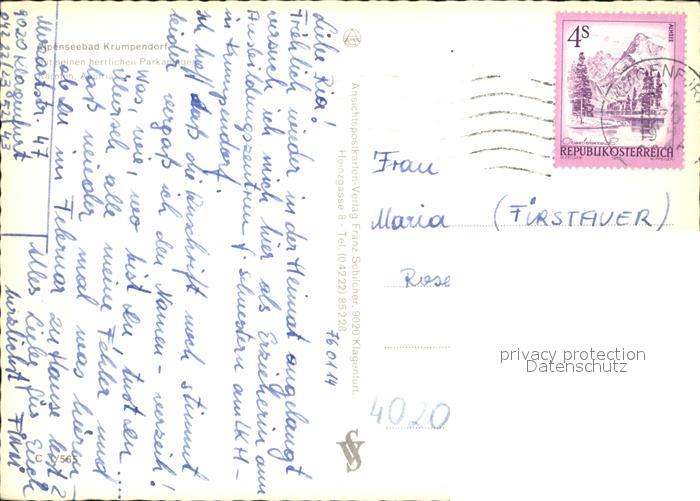 Alpenseebad Krumpendorf
mit seinen herrlichen Parkanlagen
Kärnten, Austria
Liebe Pia!
Fröhlich wieder in der Heimat angelangt
versuch ich mich hier als Erzieherin am
Ausbildungszentrum f. Schwestern am LKH -
in Krumpendorf.
Ich hoff daß die Anschrift noch stimmt
leider vergaß ich den Namen - verzeih!
Was, wie, wo bist du, tust du ...
übersieh alle meine Fehler und
laß wieder mal was hören
ob du im Februar zu Hause bist?
Alles Liebe für Euch
herzlichst
47
9020 Klagenfurt
04222/23852/43
C 1/565
Ansichtspostkarten-Verlag Franz Schilcher, 9020 Klagenfurt,
Heinzgasse 8 - Tel. (04222) 85228
760114
4S
ALMSEE
REPUBLIK ÖSTERREICH
KLAGENFURT
Frau
Maria (FIRSTAUER)
Rose
4020
privacy protection
Datenschutz